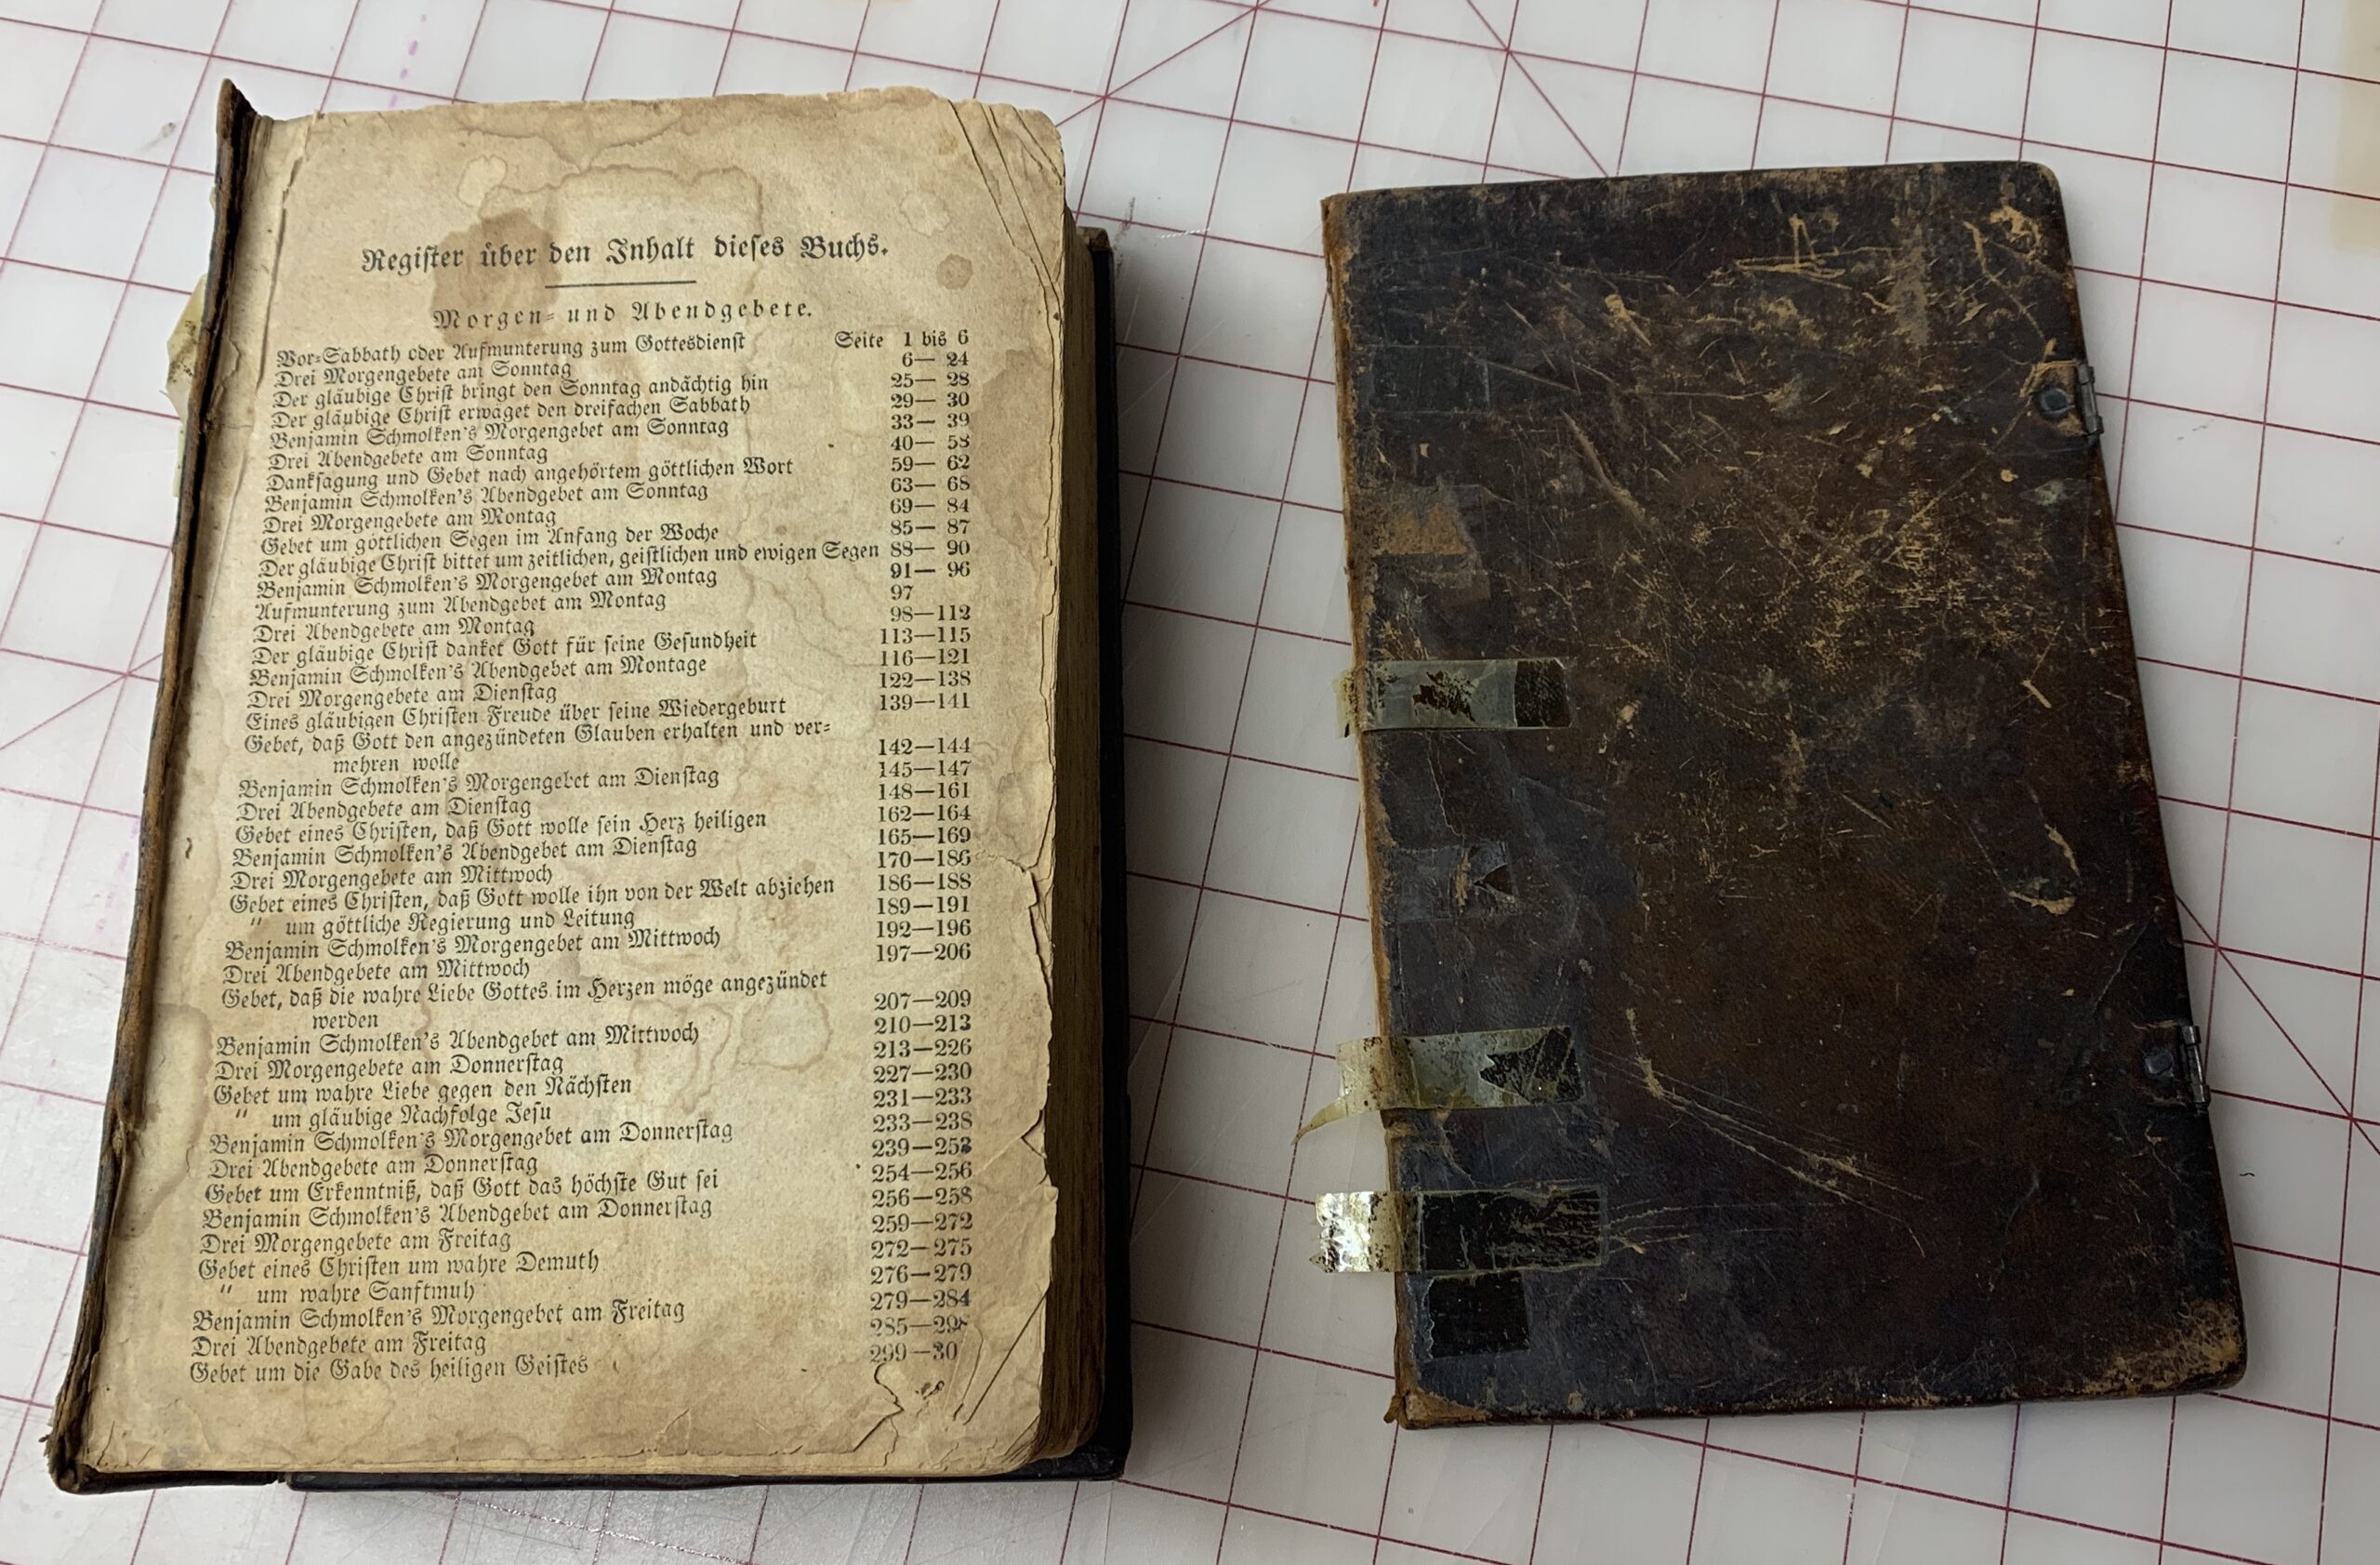 Regiſter über den Inhalt dieſes Buchs.
Morgen= und Abendgebete.
Vor=Sabbath oder Aufmunterung zum Gottesdienſt Seite 1 bis 6
Drei Morgengebete am Sonntag 6— 24
Der gläubige Chriſt bringt den Sonntag andächtig hin 25— 28
Der gläubige Chriſt erwäget den dreifachen Sabbath 29— 30
Benjamin Schmolken's Morgengebet am Sonntag 33— 39
Drei Abendgebete am Sonntag 40— 58
Dankſagung und Gebet nach angehörtem göttlichen Wort 59— 62
Benjamin Schmolken's Abendgebet am Sonntag 63— 68
Drei Morgengebete am Montag 69— 84
Gebet um göttlichen Segen im Anfang der Woche 85— 87
Der gläubige Chriſt bittet um zeitlichen, geiſtlichen und ewigen Segen 88— 90
Benjamin Schmolken's Morgengebet am Montag 91— 96
Aufmunterung zum Abendgebet am Montag 97
Drei Abendgebete am Montag 98—112
Der gläubige Chriſt danket Gott für ſeine Geſundheit 113—115
Benjamin Schmolken's Abendgebet am Montage 116—121
Drei Morgengebete am Dienſtag 122—138
Eines gläubigen Chriſten Freude über ſeine Wiedergeburt 139—141
Gebet, daß Gott den angezündeten Glauben erhalten und ver=
mehren wolle 142—144
Benjamin Schmolken's Morgengebet am Dienſtag 145—147
Drei Abendgebete am Dienſtag 148—161
Gebet eines Chriſten, daß Gott wolle ſein Herz heiligen 162—164
Benjamin Schmolken's Abendgebet am Dienſtag 165—169
Drei Morgengebete am Mittwoch 170—186
Gebet eines Chriſten, daß Gott wolle ihn von der Welt abziehen 186—188
" um göttliche Regierung und Leitung 189—191
Benjamin Schmolken's Morgengebet am Mittwoch 192—196
Drei Abendgebete am Mittwoch 197—206
Gebet, daß die wahre Liebe Gottes im Herzen möge angezündet
werden 207—209
Benjamin Schmolken's Abendgebet am Mittwoch 210—213
Drei Morgengebete am Donnerſtag 213—226
Gebet um wahre Liebe gegen den Nächſten 227—230
" um gläubige Nachfolge Jeſu 231—233
Benjamin Schmolken's Morgengebet am Donnerſtag 233—238
Drei Abendgebete am Donnerſtag 239—253
Gebet um Erkenntniß, daß Gott das höchſte Gut ſei 254—256
Benjamin Schmolken's Abendgebet am Donnerſtag 256—258
Drei Morgengebete am Freitag 259—272
Gebet eines Chriſten um wahre Demuth 272—275
" um wahre Sanftmuh 276—279
Benjamin Schmolken's Morgengebet am Freitag 279—284
Drei Abendgebete am Freitag 285—298
Gebet um die Gabe des heiligen Geiſtes 299—30